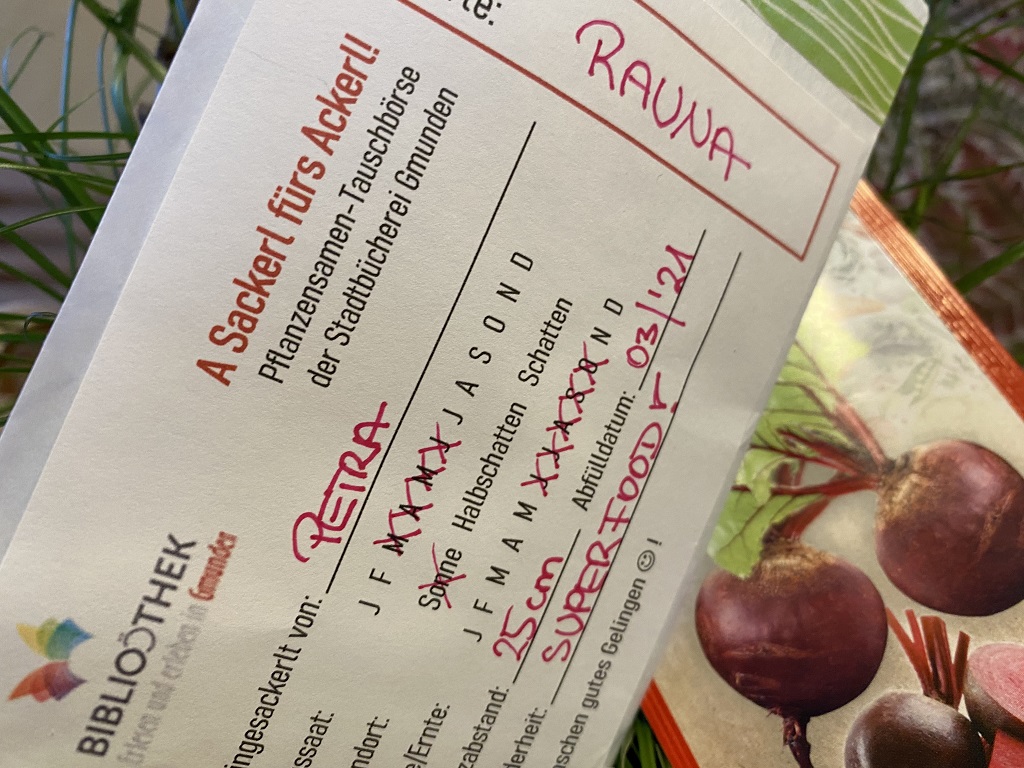 RAUNA
A Sackerl fürs Ackerl!
Pflanzensamen-Tauschbörse
der Stadtbücherei Gmunden
BIBLIOTHEK
Erlesen und erleben in Gmunden
ingesackerlt von: PETRA
ssaat: J F M A M J J A S O N D
ndort: Sonne Halbschatten Schatten
e/Ernte: J F M A M J J A S O N D
zabstand: 25cm Abfülldatum: 03/'21
derheit: SUPERFOOD!
nschen gutes Gelingen ☺!